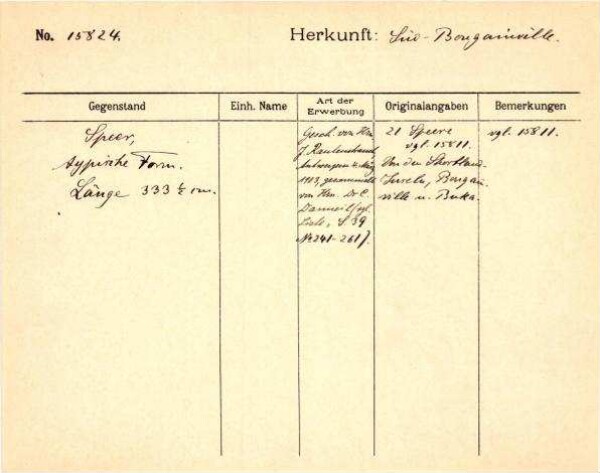 No. 15824.
Herkunft: Süd-Bougainville.
Gegenstand
Einh. Name
Art der Erwerbung
Originalangaben
Bemerkungen
Speer,
typische Form.
Länge 333 ½ cm.
Gesch. von Hrn.
J. Rautenstrauch
Antwerpen
1913, gesammelt
von Hrn. Dr. C.
Liste, S. 39
No 241-261).
21 Speere
vgl. 15811.
Von den Shortland-
Inseln, Bougain-
ville u. Buka.
vgl. 15811.